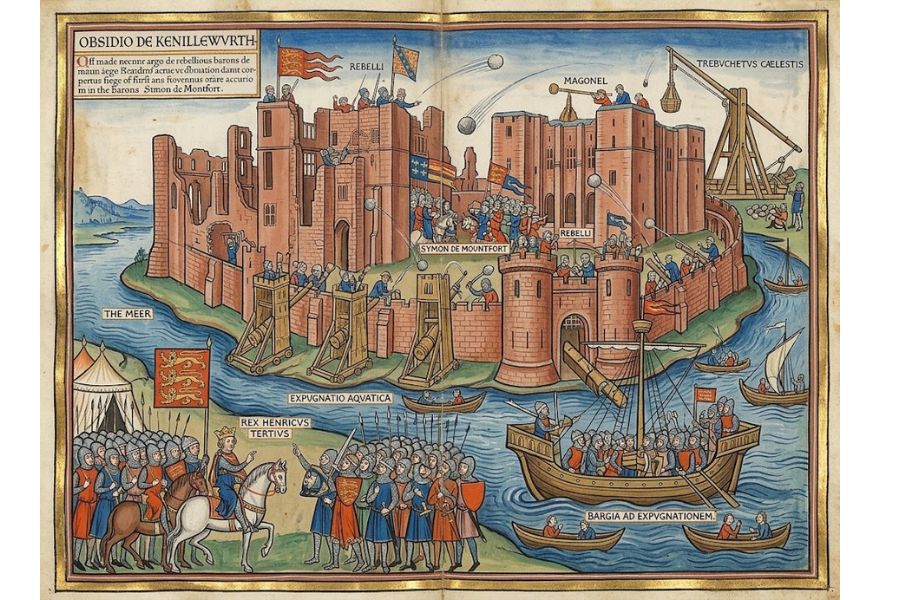 OBSIDIO DE KENILLEWVRTH·
Qff made necnnr argo de rebellious barons de
maun æge acrue ve dbnuation damt cor-
pertus fiege of firſt ans fiovennus orare accurio
m in the barons Simon de Montfort.
REBELLI
MAGONEL
TREBVCHETVS CÆLESTIS
SYMON DE MOUNTFORT
REBELLI
THE MEER
EXPVGNATIO AQVATICA
REX HENRICVS
TERTIVS
BARGIA AD EXPVGNATIONEM.